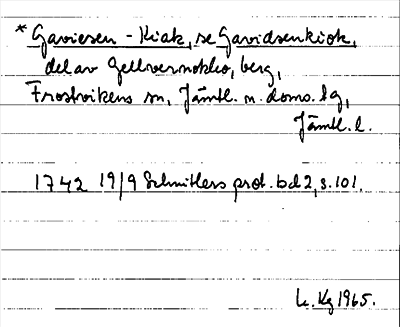 * Gaviesen - Kiak, se Gavidsenkiok,
del av Gellvernokko, berg,
Frostvikens sn, Jämtl. n. doms. lg,
Jämtl. l.
1742 19/9 Schnitlers prot. bd 2, s. 101.
L. Kg 1965.